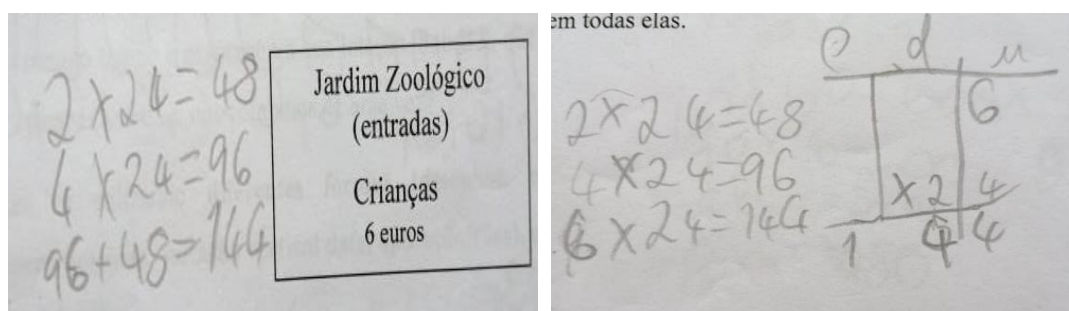 2 x 24 = 48
4 x 24 = 96
96 + 48 = 144
Jardim Zoológico
(entradas)
Crianças
6 euros
em todas elas.
2 x 24 = 48
4 x 24 = 96
6 x 24 = 144
c d u
6
x 2 4
1 4 4